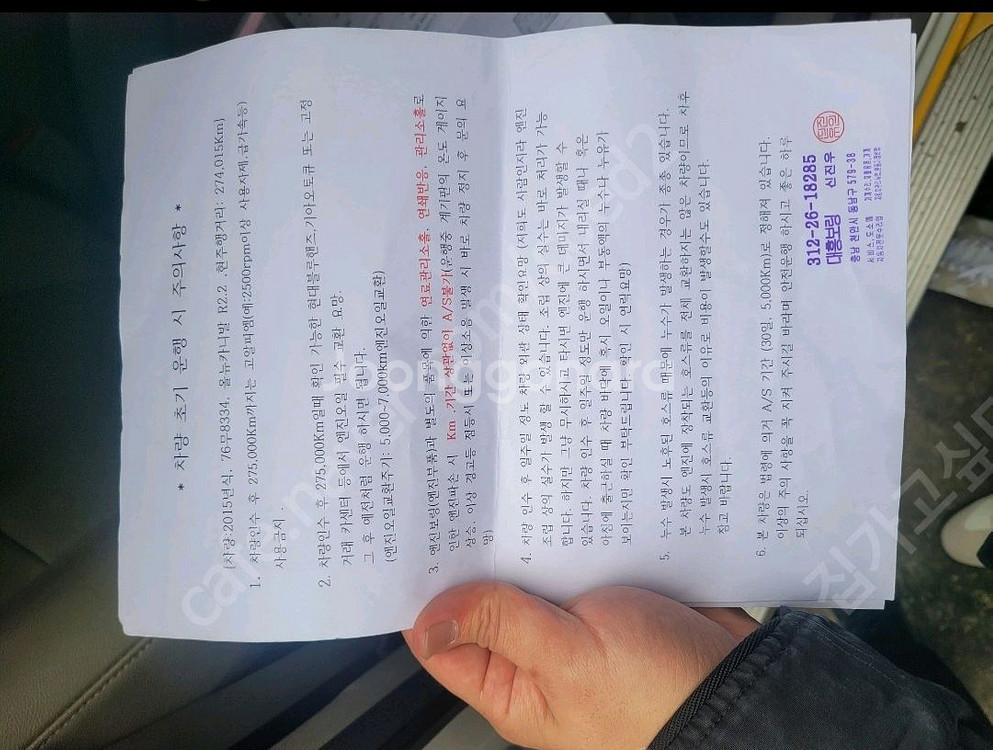 * 차량 초기 운행 시 주의사항 *
(차량:2015년식, 76무8334, 올뉴카니발 R2.2 ,현주행거리: 274,015Km)
1. 차량인수 후 275,000Km까지는 고알피엠(예:2500rpm이상 사용자제,급가속등)
사용금지 .
2. 차량인수 후 275,000Km일때 확인 가능한 현대블루핸즈,기아오토큐 또는 고정
거래 카센터 등에서 엔진오일 필수 교환 요망.
그 후 예전처럼 운행 하시면 됩니다.
(엔진오일교환주기: 5,000~7,000km엔진오일교환)
3. 엔진보링(엔진부품)과 별도의 품목에 의한 연료관리소홀, 연쇄반응, 관리소홀로
인한 엔진파손 시 Km ,기간 상관없이 A/S불가(운행중 계기판의 온도 게이지
상승, 이상 경고등 점등시 또는 이상소음 발생 시 바로 차량 정지 후 문의 요
망)
4. 차량 인수 후 일주일 정도 차량 외관 상태 확인요망 (저희도 사람인지라 엔진
조립 상의 실수가 발생 할 수 있습니다. 조립 상의 실수는 바로 처리가 가능
합니다. 하지만 그냥 무시하시고 타시면 엔진에 큰 데미지가 발생할 수
있습니다. 차량 인수 후 일주일 정도만 운행 하시면서 내리실 때나 혹은
아침에 출근하실 때 차량 바닥에 혹시 오일이나 부동액의 누수나 누유가
보이는지만 확인 부탁드립니다. 확인 시 연락요망)
5. 누수 발생시 노후된 호스류 때문에 누수가 발생하는 경우가 종종 있습니다.
본 차량도 엔진에 장착되는 호스류를 전체 교환하지는 않은 차량이므로 차후
누수 발생시 호스류 교환등의 이유로 비용이 발생할수도 있습니다.
참고 바랍니다.
6. 본 차량은 법령에 의거 A/S 기간 (30일, 5,000Km)로 정해져 있습니다.
이상의 주의 사항을 꼭 지켜 주시길 바라며 안전운행 하시고 좋은 하루
되십시오.
312-26-18285
대흥보링 신진우
충남 천안시 동남구 579-38
서비스,도소매